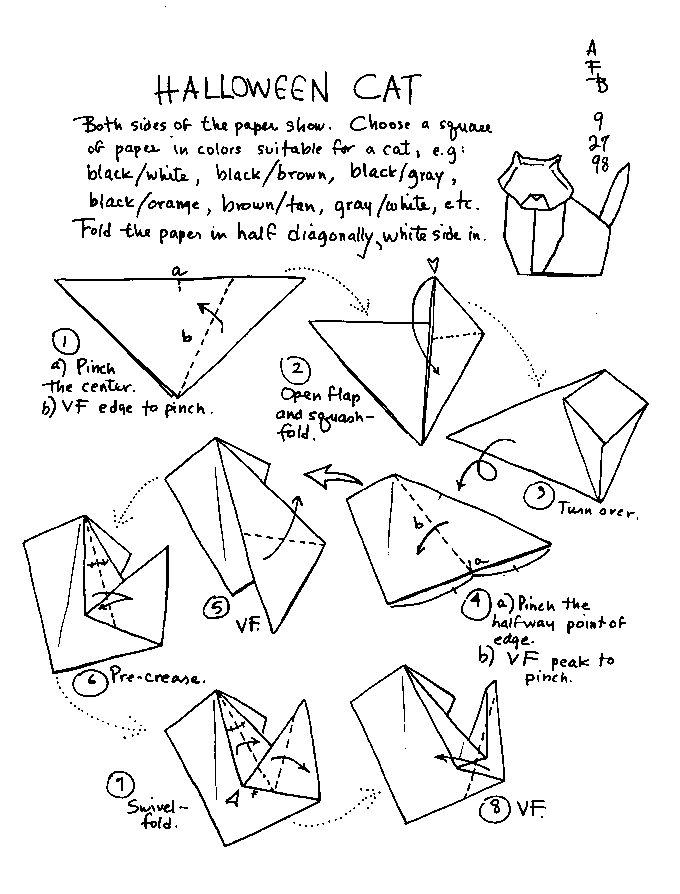 A
F
B
9
27
98
HALLOWEEN CAT
Both sides of the paper show. Choose a square
of paper in colors suitable for a cat, e.g:
black/white, black/brown, black/gray,
black/orange, brown/tan, gray/white, etc.
Fold the paper in half diagonally, white side in.
a
b
1
a) Pinch
the center.
b) VF edge to pinch.
2
Open flap
and squash-
fold.
3
Turn over.
b
a
4 a) Pinch the
halfway point of
edge.
b) VF peak to
pinch.
5
VF.
6 Pre-crease.
7
Swivel-
fold.
8 VF.